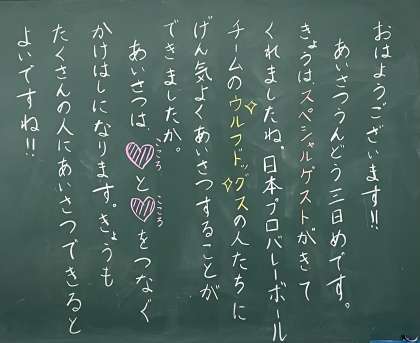 おはようございます!!
あいさつうんどう三日めです。
きょうはスペシャルゲストがきて
くれましたね。日本プロバレーボール
チームのウルフドッグスの人たちに
げん気よくあいさつすることが
できましたか。
あいさつは、こころとこころをつなぐ
かけはしになります。きょうも
たくさんの人にあいさつできると
よいですね!!